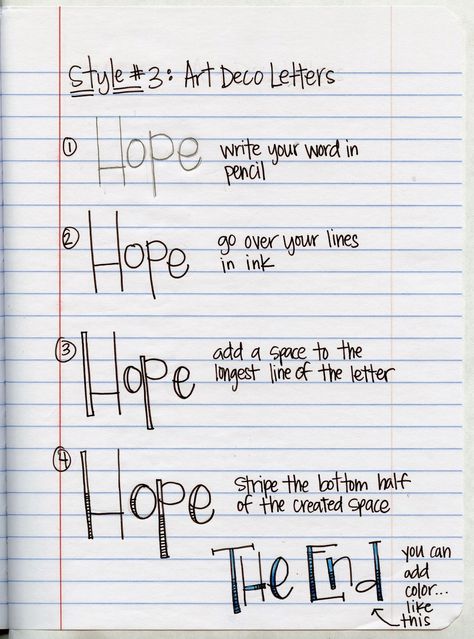 Style #3: Art Deco Letters
① Hope write your word in
pencil
② Hope go over your lines
in ink
③ Hope add a space to the
longest line of the letter
④ Hope stripe the bottom half
of the created space
THe End
you can
add
color...
like
this